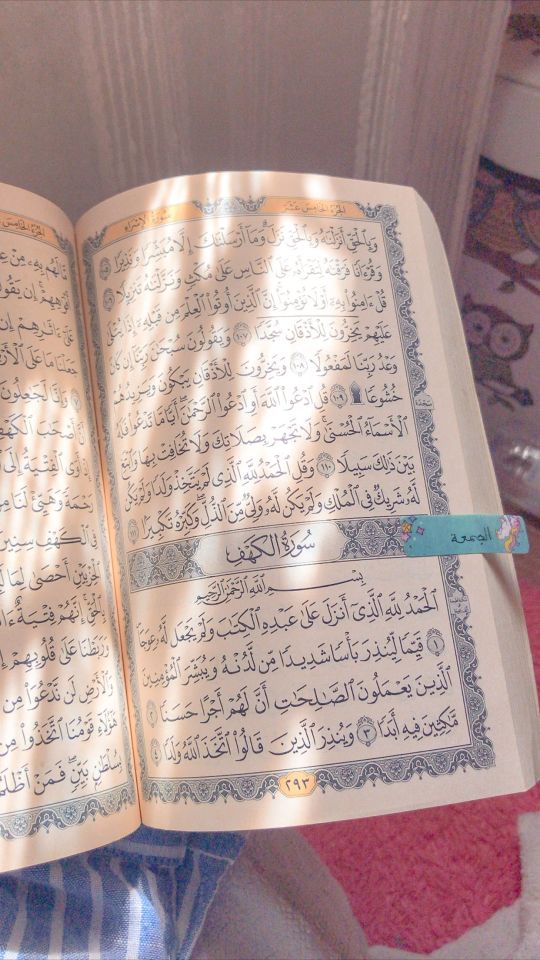 الجزء الخامس عشر
سورة الإسراء
وَبِٱلْحَقِّ أَنزَلْنَـٰهُ وَبِٱلْحَقِّ نَزَلَ ۗ وَمَآ أَرْسَلْنَـٰكَ إِلَّا مُبَشِّرًا وَنَذِيرًا ١٠٥
وَقُرْءَانًا فَرَقْنَـٰهُ لِتَقْرَأَهُۥ عَلَى ٱلنَّاسِ عَلَىٰ مُكْثٍ وَنَزَّلْنَـٰهُ تَنزِيلًا ١٠٦
قُلْ ءَامِنُوا۟ بِهِۦٓ أَوْ لَا تُؤْمِنُوٓا۟ ۚ إِنَّ ٱلَّذِينَ أُوتُوا۟ ٱلْعِلْمَ مِن قَبْلِهِۦٓ إِذَا يُتْلَىٰ
عَلَيْهِمْ يَخِرُّونَ لِلْأَذْقَانِ سُجَّدًا ١٠٧ وَيَقُولُونَ سُبْحَـٰنَ رَبِّنَآ إِن كَانَ
وَعْدُ رَبِّنَا لَمَفْعُولًا ١٠٨ وَيَخِرُّونَ لِلْأَذْقَانِ يَبْكُونَ وَيَزِيدُهُمْ
خُشُوعًا ۩ ١٠٩ قُلِ ٱدْعُوا۟ ٱللَّهَ أَوِ ٱدْعُوا۟ ٱلرَّحْمَـٰنَ ۖ أَيًّا مَّا تَدْعُوا۟ فَلَهُ
ٱلْأَسْمَآءُ ٱلْحُسْنَىٰ ۚ وَلَا تَجْهَرْ بِصَلَاتِكَ وَلَا تُخَافِتْ بِهَا وَٱبْتَغِ
بَيْنَ ذَٰلِكَ سَبِيلًا ١١٠ وَقُلِ ٱلْحَمْدُ لِلَّهِ ٱلَّذِى لَمْ يَتَّخِذْ وَلَدًا وَلَمْ يَكُن
لَّهُۥ شَرِيكٌ فِى ٱلْمُلْكِ وَلَمْ يَكُن لَّهُۥ وَلِىٌّ مِّنَ ٱلذُّلِّ ۖ وَكَبِّرْهُ تَكْبِيرًۢا ١١١
سُورَةُ الكَهْفِ
الجمعة
بِسْمِ ٱللَّهِ ٱلرَّحْمَـٰنِ ٱلرَّحِيمِ
ٱلْحَمْدُ لِلَّهِ ٱلَّذِىٓ أَنزَلَ عَلَىٰ عَبْدِهِ ٱلْكِتَـٰبَ وَلَمْ يَجْعَل لَّهُۥ عِوَجَا
١ قَيِّمًا لِّيُنذِرَ بَأْسًا شَدِيدًا مِّن لَّدُنْهُ وَيُبَشِّرَ ٱلْمُؤْمِنِينَ
ٱلَّذِينَ يَعْمَلُونَ ٱلصَّـٰلِحَـٰتِ أَنَّ لَهُمْ أَجْرًا حَسَنًا ٢
مَّـٰكِثِينَ فِيهِ أَبَدًا ٣ وَيُنذِرَ ٱلَّذِينَ قَالُوا۟ ٱتَّخَذَ ٱللَّهُ وَلَدًا ٤
٢٩٣
الجزء الخامس
مَّا لَهُم بِهِۦ مِنْ
أَفْوَٰهِهِمْ ۚ إِن يَقُولُو
عَلَىٰٓ ءَاثَـٰرِهِمْ إِن
جَعَلْنَا مَا عَلَى ٱلْأَرْ
وَإِنَّا لَجَـٰعِلُونَ
أَنَّ أَصْحَـٰبَ ٱلْكَهْفِ
أَوَى ٱلْفِتْيَةُ إِلَى
رَحْمَةً وَهَيِّئْ لَنَا مِنْ
فِى ٱلْكَهْفِ سِنِينَ
ٱلْحِزْبَيْنِ أَحْصَىٰ لِمَا
بِٱلْحَقِّ ۚ إِنَّهُمْ فِتْيَةٌ
وَرَبَطْنَا عَلَىٰ قُلُوبِهِمْ
وَٱلْأَرْضِ لَن نَّدْعُوَا۟ مِن
هَـٰٓؤُلَآءِ قَوْمُنَا ٱتَّخَذُوا۟ مِن
بِسُلْطَـٰنٍۭ بَيِّنٍ ۖ فَمَنْ أَظْلَمُ